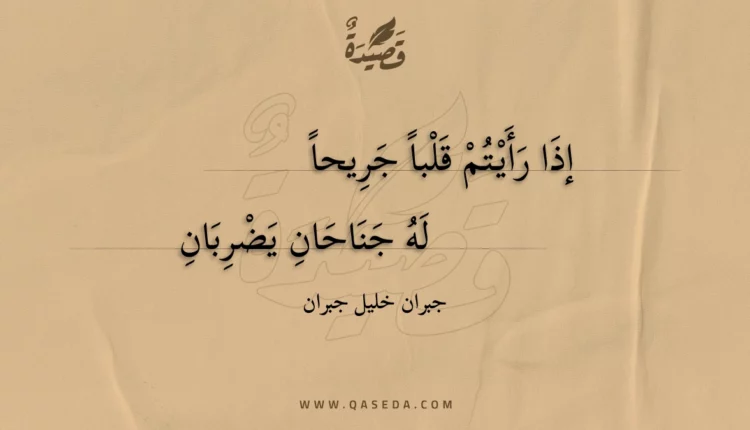 قَصِيدَةٌ
إِذَا رَأَيْتُمْ قَلْباً جَرِيحاً
لَهُ جَنَاحَانِ يَضْرِبَانِ
جبران خليل جبران
WWW.QASEDA.COM